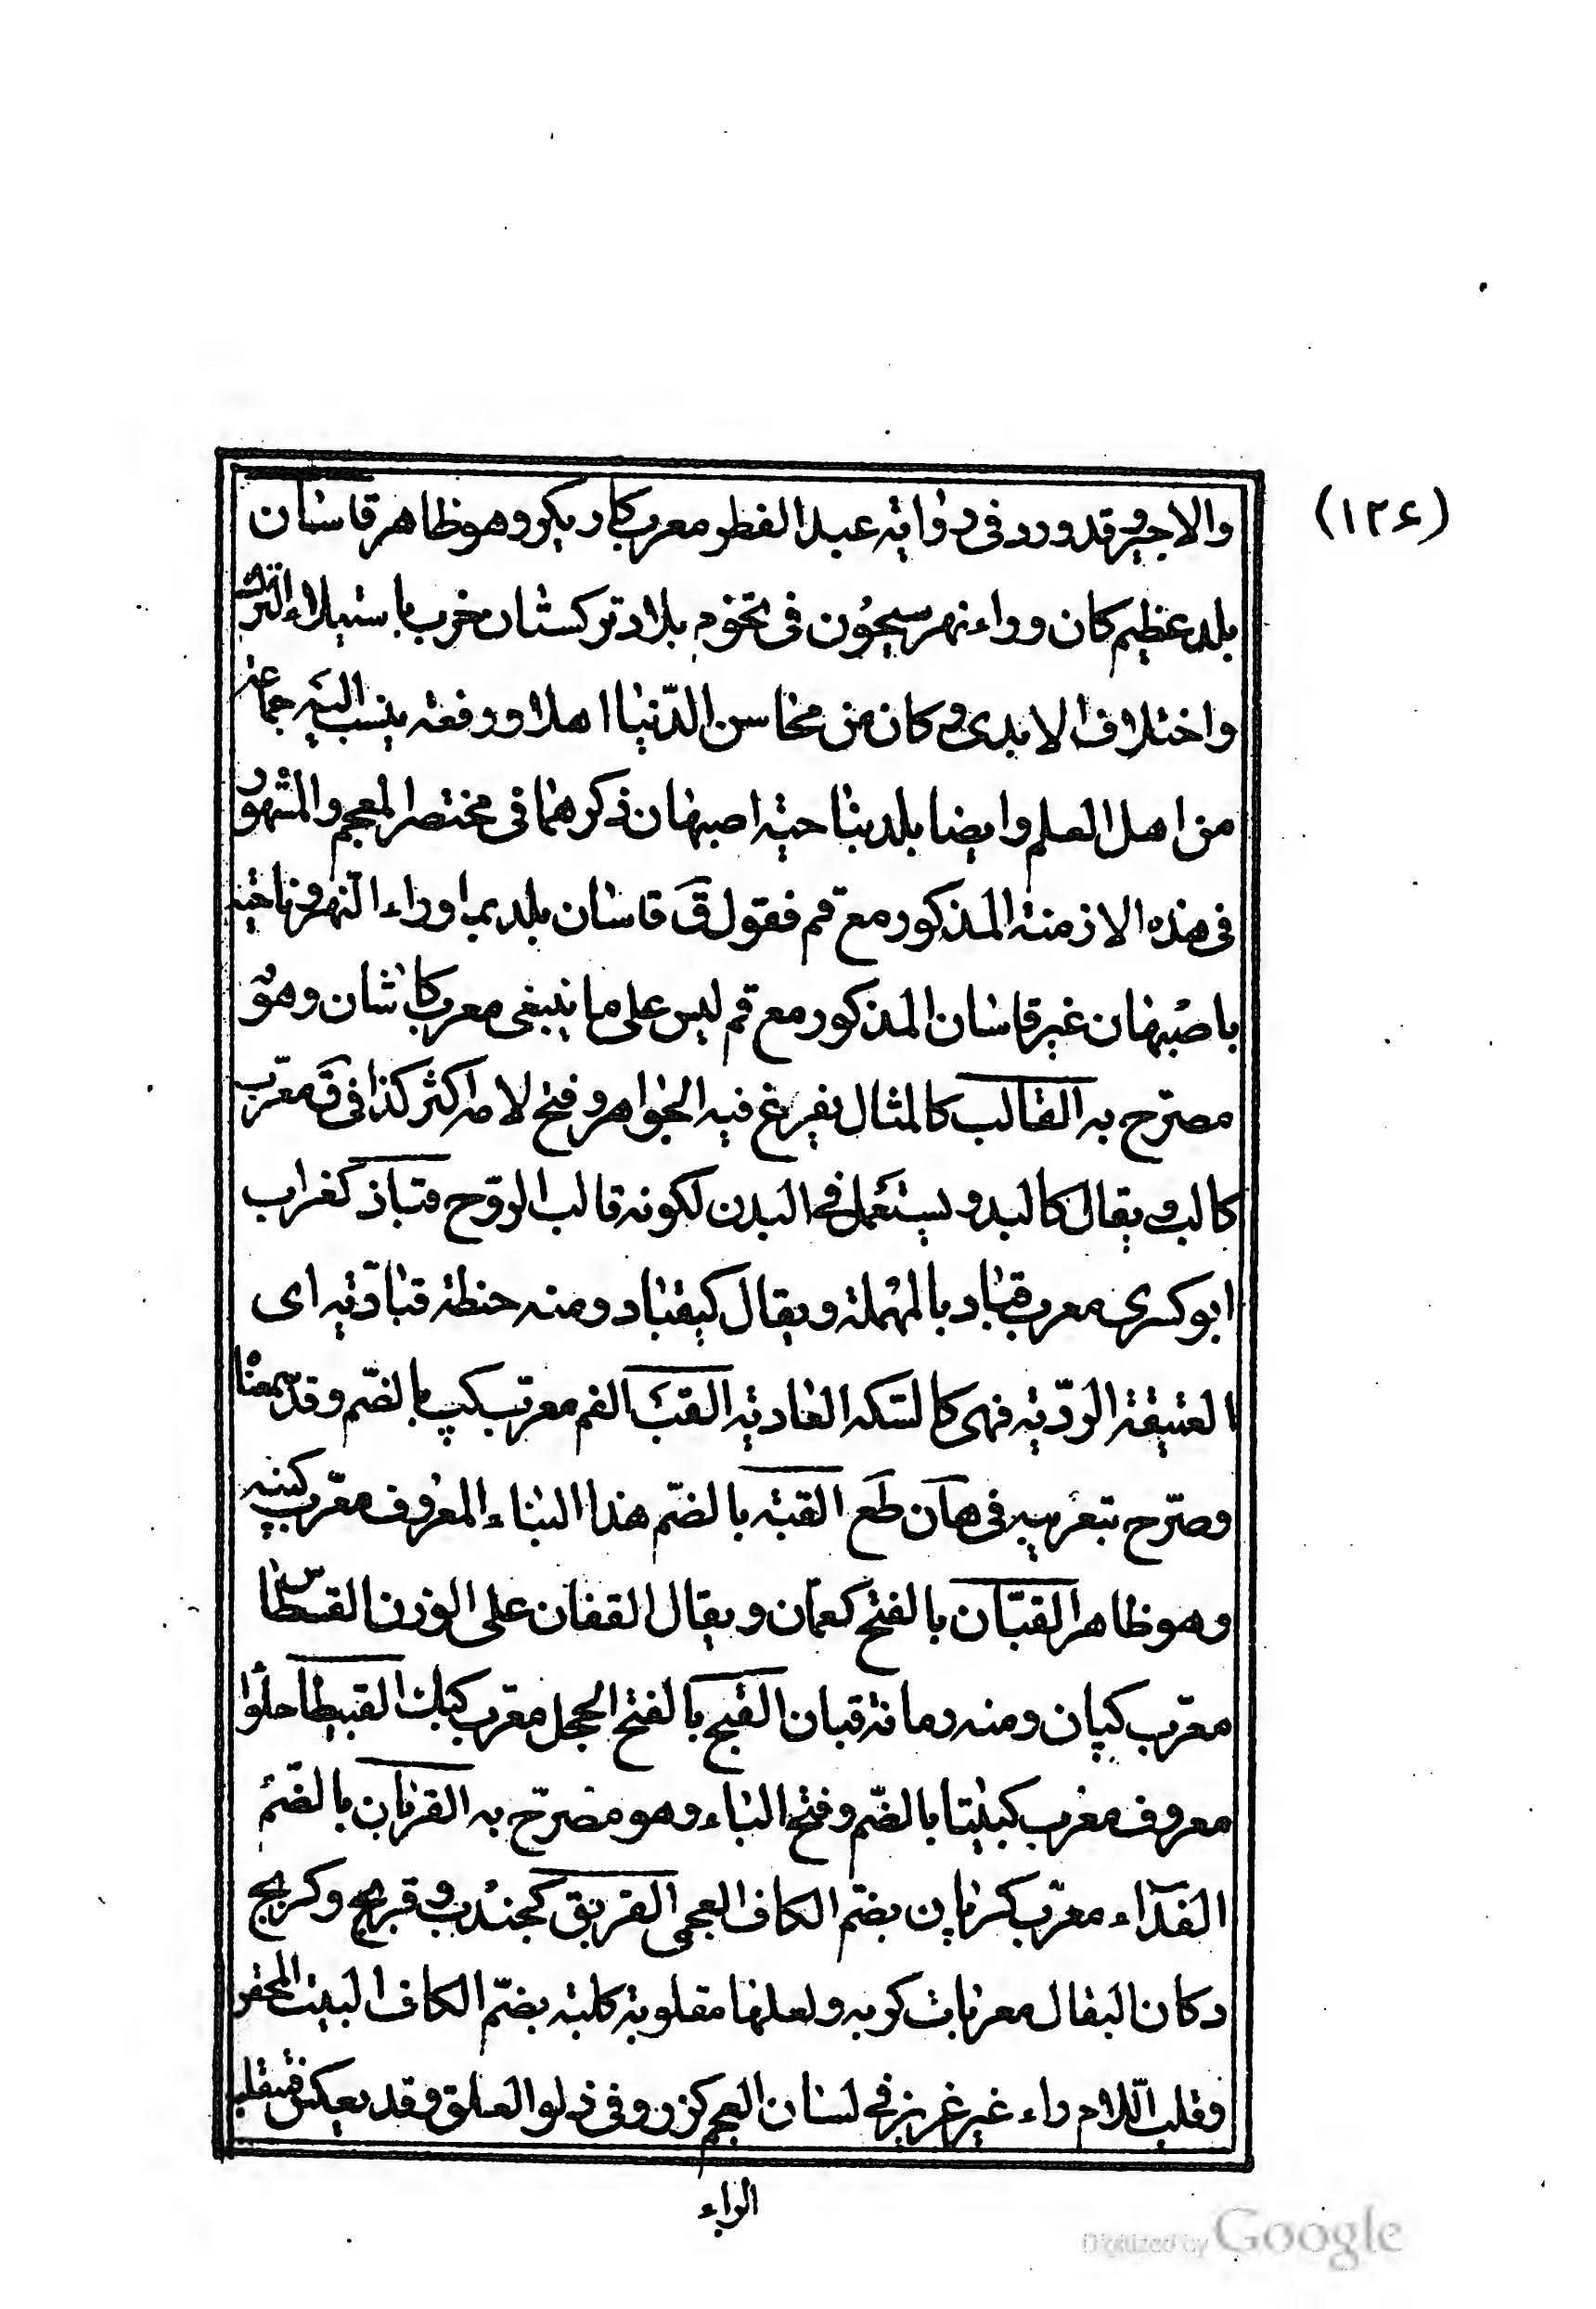 (١٢۶)
والاجير وقد ورد فى رواية عبد الفطر معرب كاريكر وهو ظاهر قاسان
بلد عظيم كان وراء نهر سيحون فى تخوم بلاد تركستان خرب باستيلاء الترك
واختلاف الايدى وكان من محاسن الدّنيا اهلا ورفعة ينسب اليه جماعة
من اهل العلم وايضا بلد بناحية اصبهان ذكرهما فى مختصر المعجم والمشهور
فى هذه الازمنة المذكور مع قم فقول ق قاسان بلد بما وراء النّهر وناحية
باصبهان غير قاسان المذكور مع قم ليس على ما ينبغى معرب كاشان وهو
مصرّح به القالب كالمثال يفرغ فيه الجواهر وفتح لامه اكثر كذا فى ق معرّب
كالب ويقال كالبد ويستعمل فى البدن لكونه قالب الروّح قباذ كغراب
ابو كسرى معرب قباد بالمهملة ويقال كيقباد ومنه حنطة قباذّية اى
العتيقة الردّية فهى كالسّكه العادية القبّ الفم معرّب كپ بالضّم وقد سمعنا
وصرّح بتعريبه فى هان طع القبّة بالضّم هذا البناء المعروف معرّب كنبه
وهو ظاهر القبّان بالفتح كعمّان ويقال القفان على الوزن القسطاس
معرّب كپان ومنه رمانة قبان القبج بالفتح الحجل معرّب كبك القبيطا حلوا
معروف معرب كبيتا بالضّم وفتح الباء وهو مصرّح به القربان بالضّم
الفدآء معرّب كرپان بضّم الكاف العجمى القربق كجندب وقربج وكربج
دكان البقال معربات كربه ولعلها مقلوبة كلبه بضّم الكاف البيت المحقر
وقلب اللام راء غير غريز فى لسان العجم كزرو فى ذلو العلق وقد يعكس فيقلب
الراء
Digitized by Google